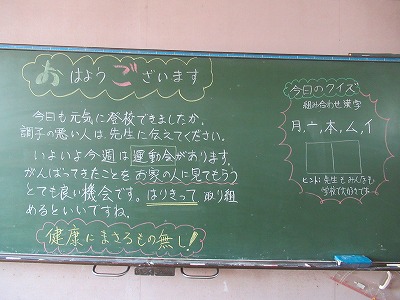 おはようございます
今日も元気に登校できましたか。
調子の悪い人は先生に伝えてください。
いよいよ今週は運動会があります。
がんばってきたことをお家の人に見てもらう
とても良い機会です。はりきって取り組
めるといいですね。
健康にまさるもの無し!
今日のクイズ
組み合わせ漢字
月,六,本,ム,イ
ヒント:先生もみんなも
学校で大好きでよ